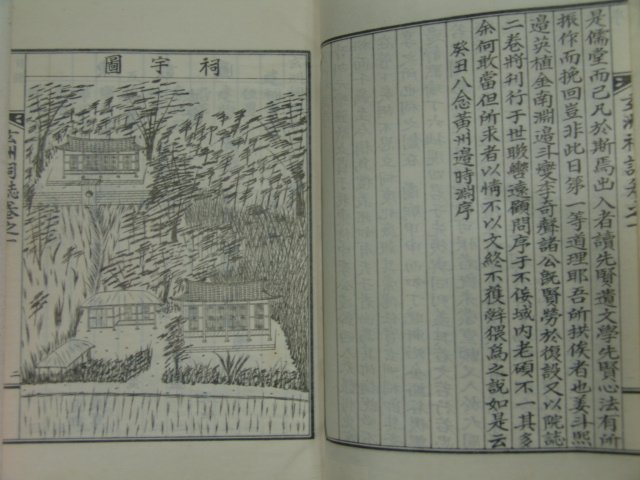 是儒堂而已凡於斯焉出入者讀先賢遺文學先賢心法有所
振作而挽回豈非此日第一等道理耶吾所拱俟者也姜斗熙
邉英植金南淵邉斗燮李奇聲諸公旣賢勞於復設又以院誌
二卷將刊行于世聯轡遠顧問序于不佞域内老碩不一其多
余何敢當但所求者以情不以文終不獲辭猥爲之說如是云
癸丑八念黃州邉時淵序
祠宇圖